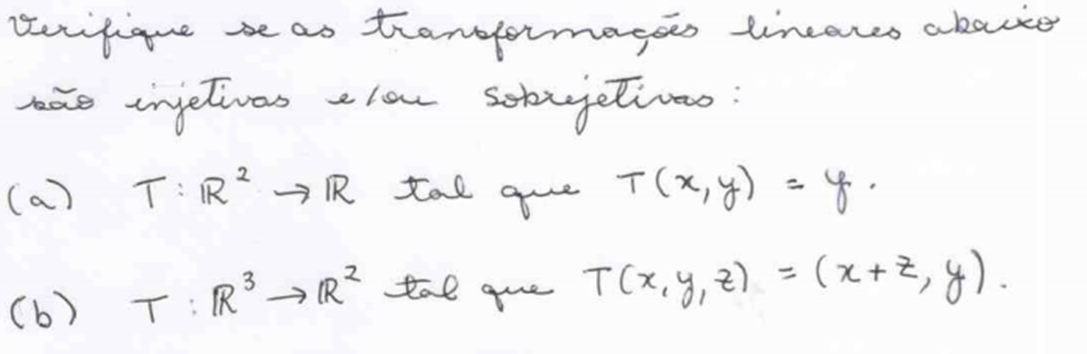 Verifique se as transformações lineares abaixo
são injetivas e/ou sobrejetivas:
(a) T: ℝ² → ℝ tal que T(x,y) = y.
(b) T: ℝ³ → ℝ² tal que T(x,y,z) = (x+z, y).